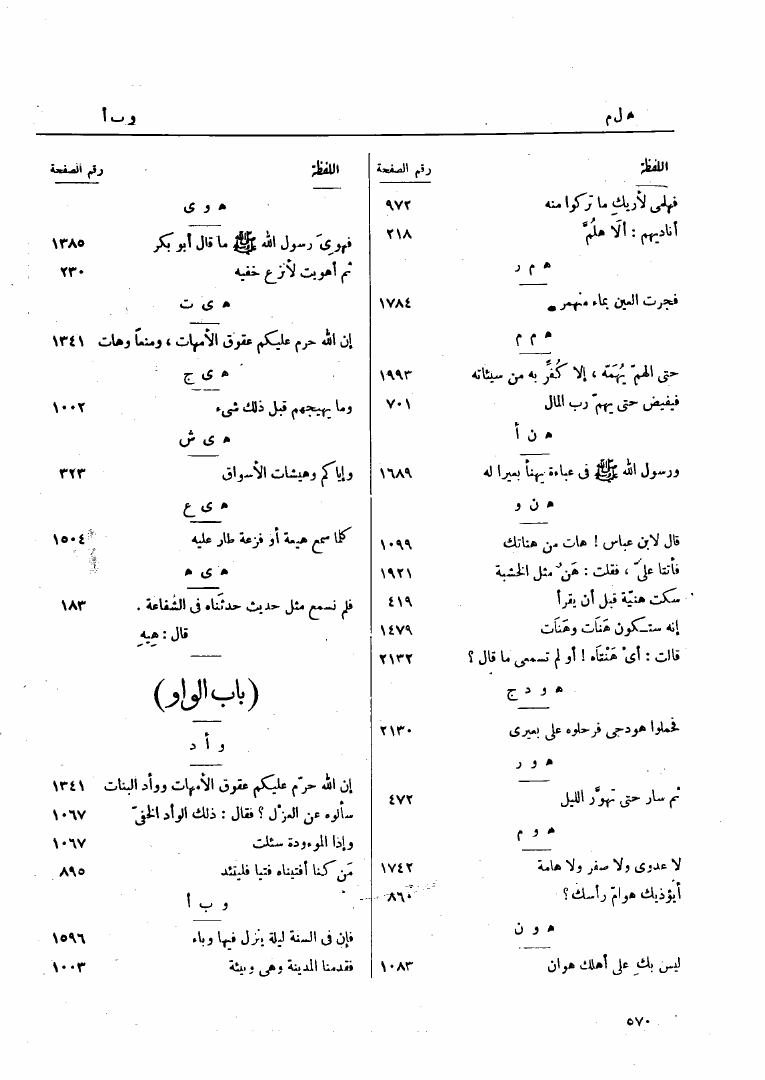 ه ل م
و ب أ
اللفظة رقم الصفحة
فهلمى لأريك ما تركوا منه ٩٧٢
أناديهم : ألَا هلُمَّ ٢١٨
ه م ر
فجرت العين بماء منهمر ١٧٨٤
ه م م
حتى الهمّ يُهَمّه ، إلا كُفِّر به من سيئاته ١٩٩٣
فيفيض حتى يهمّ رب المال ٧٠١
ه ن أ
ورسول الله ﷺ فى عباءة يهنأ بعيرا له ١٦٨٩
ه ن و
قال لابن عباس ! هات من هناتك ١٠٩٩
فأتتا علىّ ، فقلت : هَنٌ مثل الخشبة ١٩٢١
سكت هنيّة قبل أن يقرأ ٤١٩
إنه ستكون هَنَات وهَنَات ١٤٧٩
قالت : أىْ هَنْتَاه ! أو لم تسمعى ما قال ؟ ٢١٣٢
ه و د ج
فحملوا هودجى فرحلوه على بعيرى ٢١٣٠
ه و ر
ثم سار حتى تهوَّر الليل ٤٧٢
ه و م
لا عدوى ولا صفر ولا هامة ١٧٤٢
أيؤذيك هوامّ رأسك ؟ ٨٦٠
ه و ن
ليس بك على أهلك هوان ١٠٨٣
اللفظة رقم الصفحة
ه و ى
فهوِىَ رسول الله ﷺ ما قال أبو بكر ١٣٨٥
ثم أهويت لأنزع خفيه ٢٣٠
ه ى ت
إن الله حرم عليكم عقوق الأمهات ، ومنعاً وهات ١٣٤١
ه ى ج
وما يهيجهم قبل ذلك شىء ١٠٠٢
ه ى ش
وإياكم وهيشات الأسواق ٣٢٣
ه ى ع
كلما سمع هيعة أو فزعة طار عليه ١٥٠٤
ه ى ه
فلم نسمع مثل حديث حدثَناه فى الشفاعة . ١٨٣
قال : هِيهِ
( باب الواو )
و أ د
إن الله حرّم عليكم عقوق الأمهات ووأد البنات ١٣٤١
سألوه عن العزل ؟ فقال : ذلك الوأد الخفىّ ١٠٦٧
وإذا الموءودة سئلت ١٠٦٧
مَن كنا أفتيناه فتيا فليتئد ٨٩٥
و ب أ
فإن فى السنة ليلة ينزل فيها وباء ١٥٩٦
فقدمنا المدينة وهى وبيئة ١٠٠٣
٥٧٠